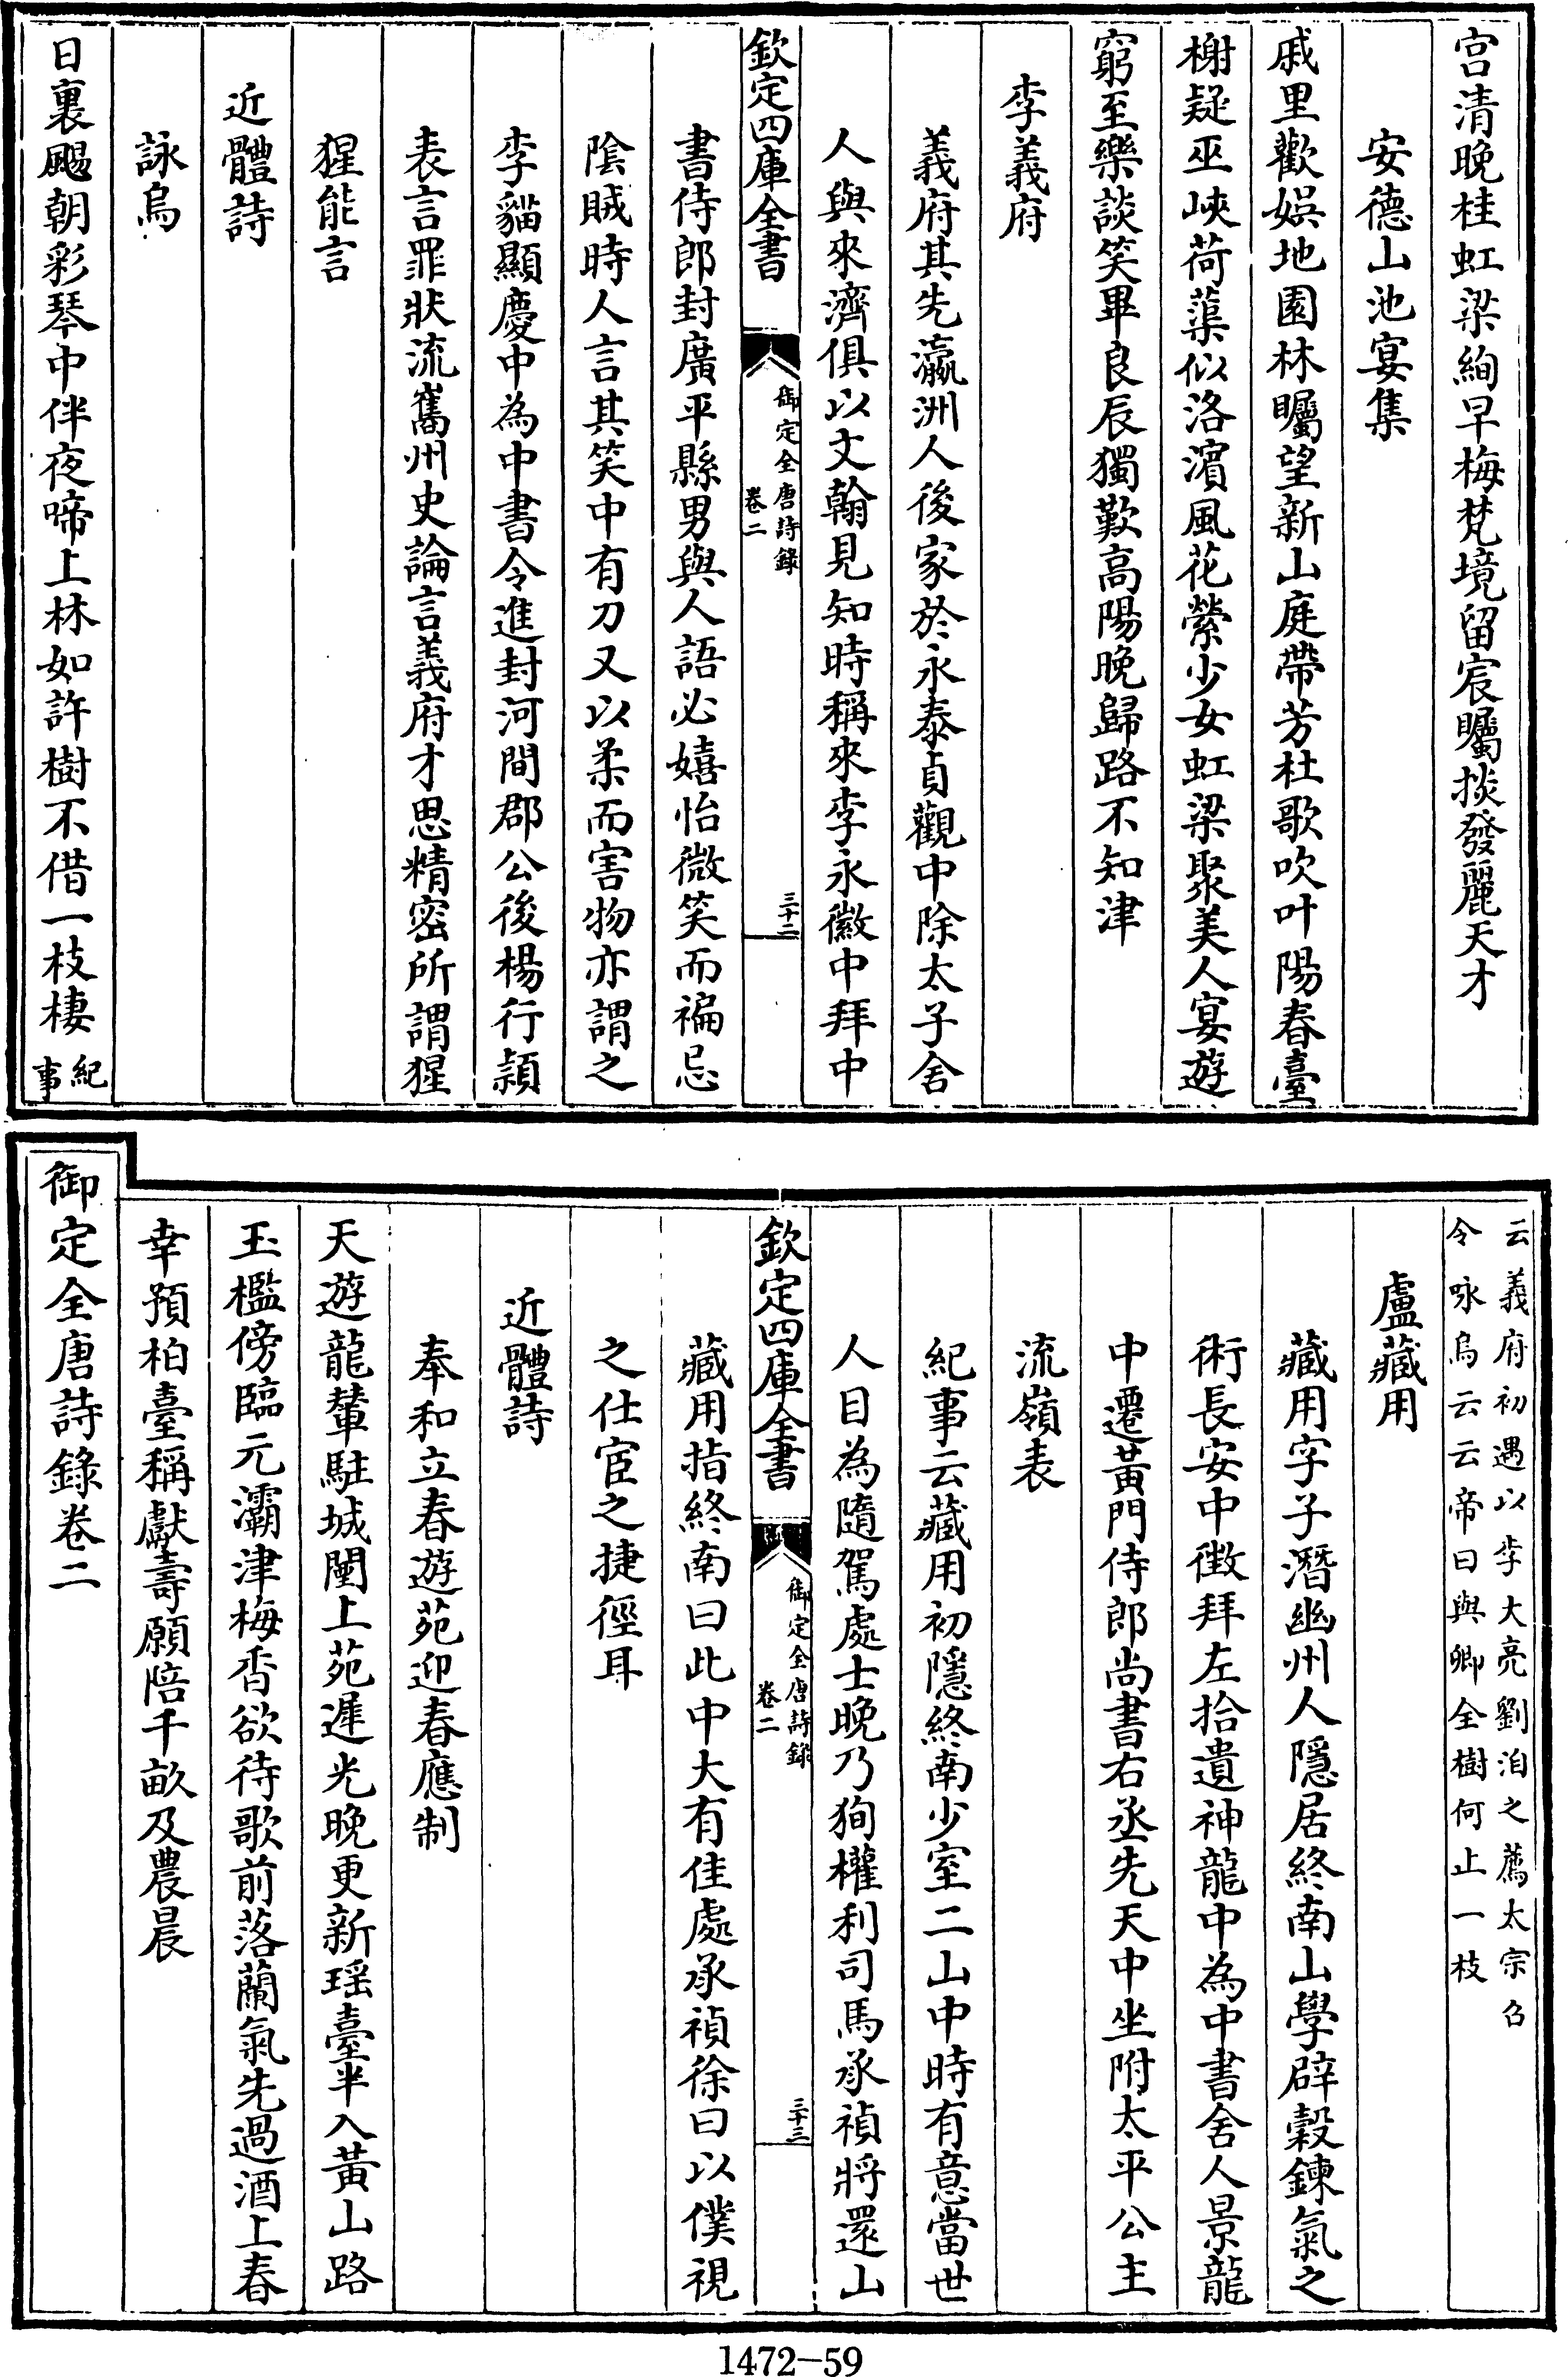 宫清晚桂虹梁絢早梅梵境留宸矚掞發麗天才
安德山池宴集
戚里歡娯地園林矚望新山庭帶芳杜歌吹叶陽春臺
榭疑巫峽荷蕖似洛濵風花縈少女虹梁聚美人宴遊
窮至樂談笑畢良辰獨歎高陽晚歸路不知津
李義府
義府其先瀛洲人後家於永泰貞觀中除太子舍
人與來濟俱以文翰見知時稱來李永徽中拜中
欽定四庫全書
御定全唐詩錄
卷二
三十二
書侍郎封廣平縣男與人語必嬉怡微笑而褊忌
隂賊時人言其笑中有刀又以柔而害物亦謂之
李貓顯慶中為中書令進封河間郡公後楊行頴
表言罪狀流巂州史論言義府才思精密所謂猩
猩能言
近體詩
詠烏
日裏颺朝彩琴中伴夜啼上林如許樹不借一枝棲紀
事
云義府初遇以李大亮劉洎之薦太宗召
令咏烏云云帝曰與卿全樹何止一枝
盧藏用
藏用字子潛幽州人隱居終南山學辟穀鍊氣之
術長安中徴拜左拾遺神龍中為中書舍人景龍
中遷黃門侍郎尚書右丞先天中坐附太平公主
流嶺表
紀事云藏用初隱終南少室二山中時有意當世
人目為隨駕處士晚乃狥權利司馬承禎將還山
欽定四庫全書
御定全唐詩錄
卷二
三十三
藏用指終南曰此中大有佳處承禎徐曰以僕視
之仕宦之捷徑耳
近體詩
奉和立春遊苑迎春應制
天遊龍輦駐城闉上苑遲光晚更新瑶臺半入黃山路
玉檻傍臨元灞津梅香欲待歌前落蘭氣先過酒上春
幸預柏臺稱獻壽願陪千畝及農晨
御定全唐詩錄卷二
1472-59